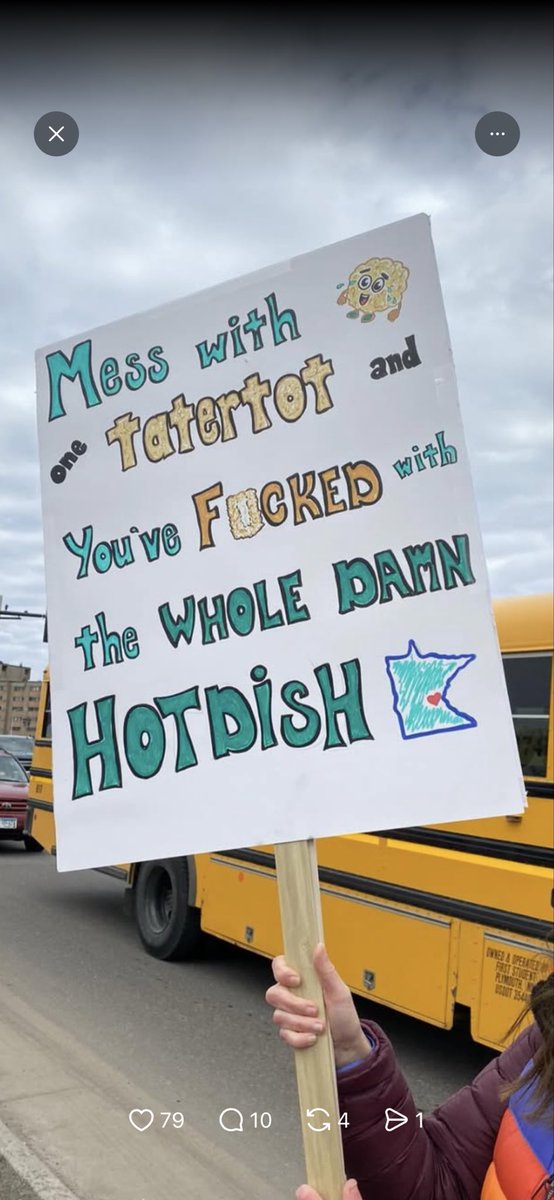 Mess with
one tatertot and
You've FUCKED with
the WHOLE DAMN
HOTDISH
OWNED & OPERATED
FIRST STUDENT
PLYMOUTH,
USDOT
79 10 4 1